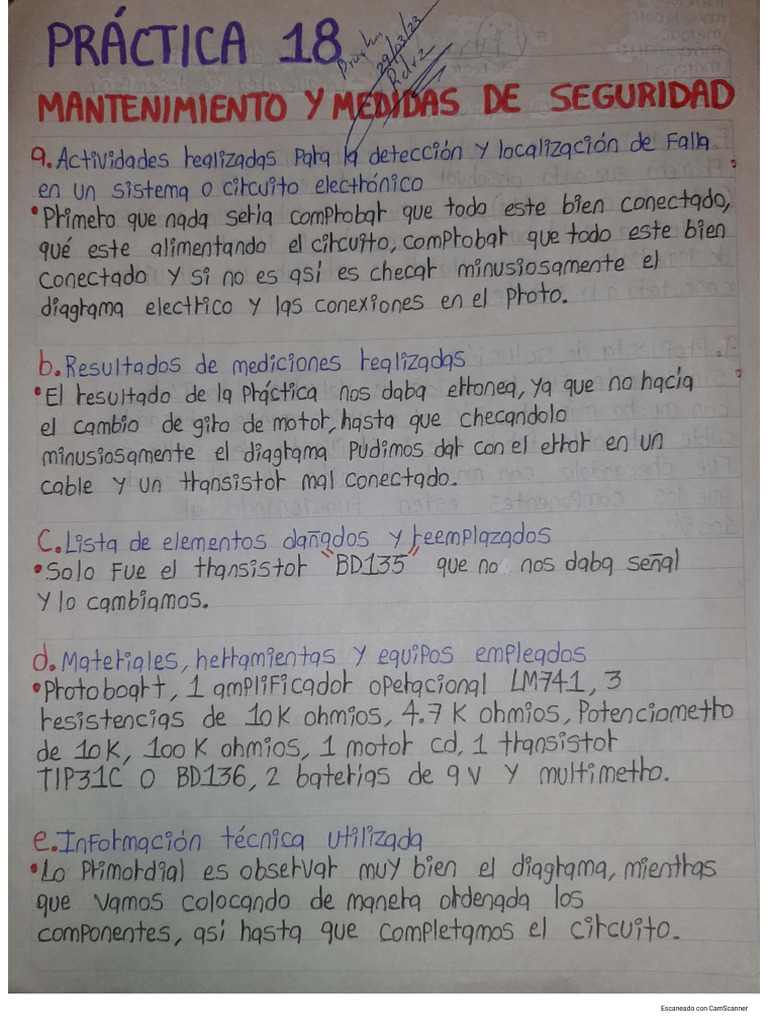 PRÁCTICA 18
29/03/23
MANTENIMIENTO Y MEDIDAS DE SEGURIDAD
a. Actividades realizadas para la detección y localización de falla
en un sistema o circuito electrónico
• Primero que nada seria comprobar que todo este bien conectado,
qué este alimentando el circuito, comprobar que todo este bien
conectado y si no es así es checar minusiosamente el
diagrama electrico y las conexiones en el proto.
b. Resultados de mediciones realizadas
• El resultado de la práctica nos daba erronea, ya que no hacía
el cambio de giro de motor, hasta que checandolo
minusiosamente el diagrama pudimos dar con el error en un
cable y un transistor mal conectado.
C. Lista de elementos dañados y reemplazados
• Solo fue el transistor "BD135" que no nos daba señal
y lo cambiamos.
d. Materiales, herramientas y equipos empleados
• Protoboart, 1 amplificador operacional LM741, 3
resistencias de 10K ohmios, 4.7 K ohmios, Potenciometro
de 10K, 100 K ohmios, 1 motor cd, 1 transistor
TIP31C O BD136, 2 baterias de 9 v y multimetro.
e. Información técnica utilizada
• Lo primordial es observar muy bien el diagrama, mientras
que vamos colocando de manera ordenada los
componentes, asi hasta que completamos el circuito.
Escaneado con CamScanner